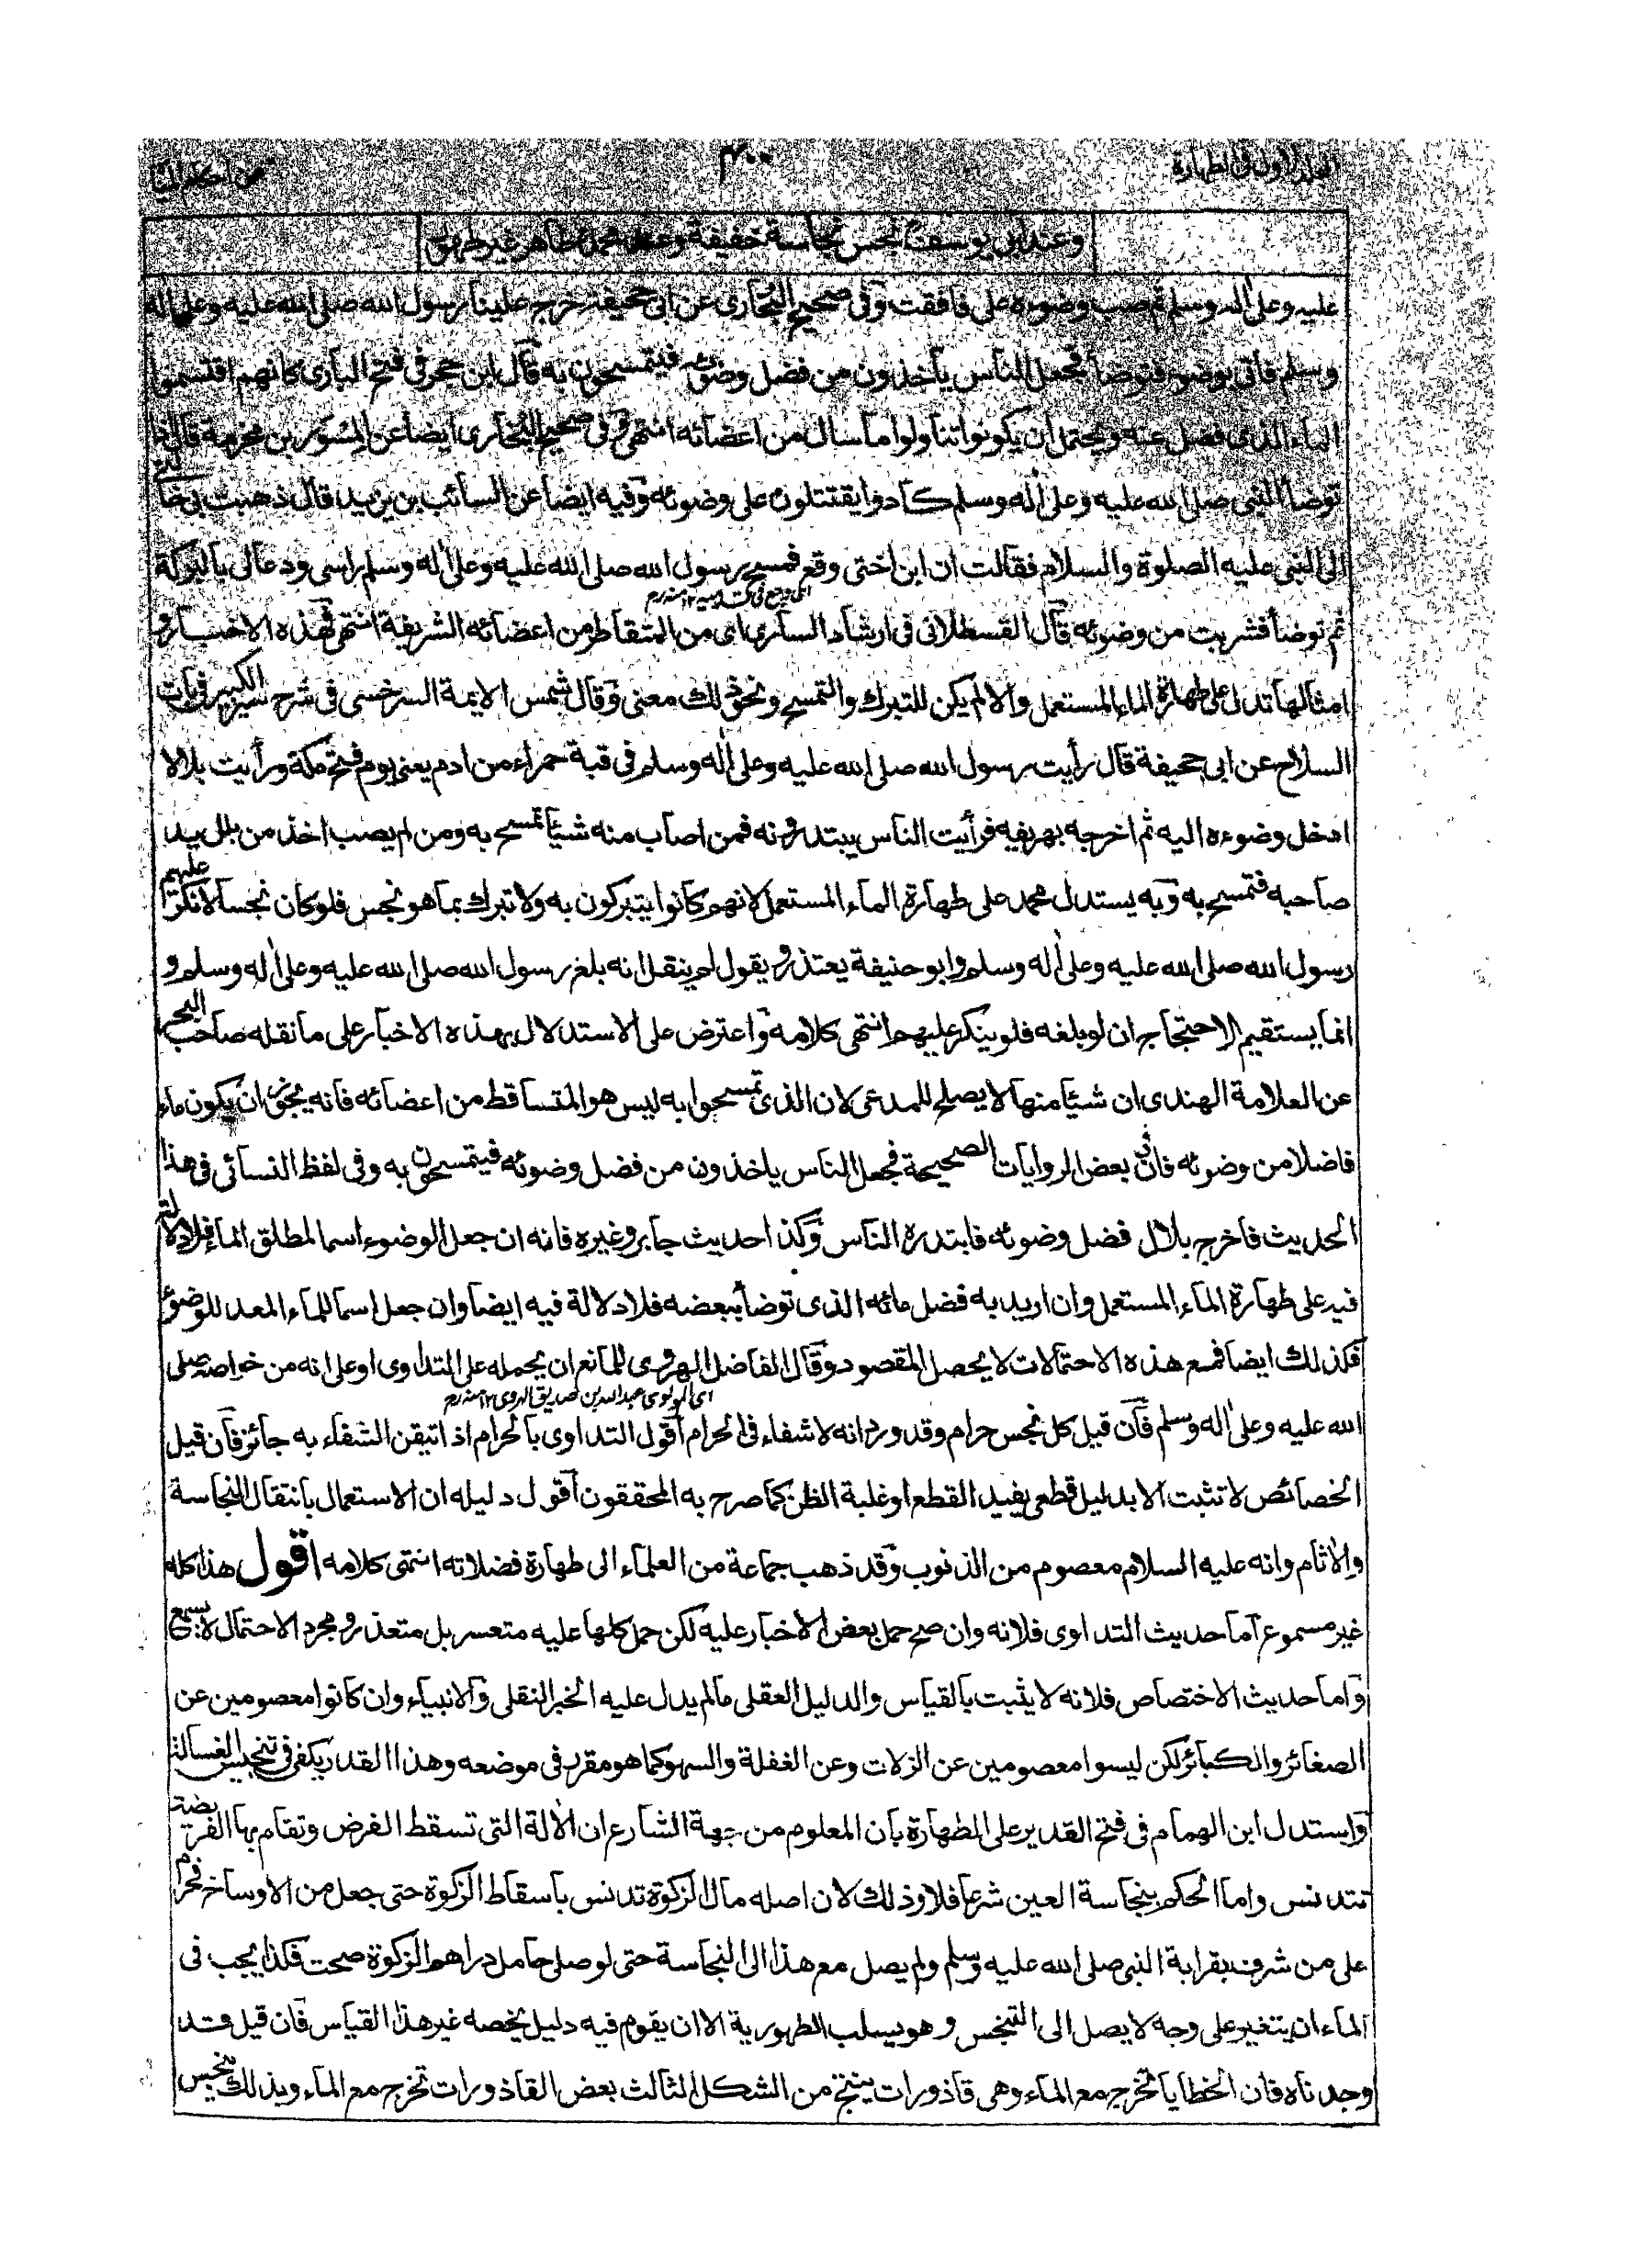 المجلد الاول فى الطهارة
٤٠٠
من احكام المياه
وعند ابى يوسف نجس نجاسة خفيفة وعند محمد طاهر غير طهور
عليه وعلى اله وسلم ثم صب وضوءه على فافقت وفى صحيح البخارى عن ابى جحيفة خرج علينا رسول الله صلى الله عليه وعلى اله
وسلم فاتى بوضوء فتوضأ فجعل الناس يأخذون من فضل وضوئه فيتمسحون به قال ابن حجر فى فتح البارى كانهم اقتسموا
الماء الذى فضل عنه ويحتمل ان يكونوا تناولوا ما سال من اعضائه انتهى وفى صحيح البخارى ايضا عن المسور بن مخرمة قال اذا
توضأ النبى صلى الله عليه وعلى اله وسلم كادوا يقتتلون على وضوئه وفيه ايضا عن السائب بن يزيد قال ذهبت بى خالتى
الى النبى عليه الصلوة والسلام فقالت ان ابن اختى وقع فمسح رسول الله صلى الله عليه وعلى اله وسلم راسى ودعا لى بالبركة
ثم توضأ فشربت من وضوئه قال القسطلانى فى ارشاد السارى اى من المتقاطر من اعضائه الشريفة انتهى فهذه الاخبار و
امثالها تدل على طهارة الماء المستعمل والا لم يكن للتبرك والتمسح ونحو ذلك معنى وقال شمس الايمة السرخسى فى شرح السير الكبير فى باب
السلاح عن ابى جحيفة قال رأيت رسول الله صلى الله عليه وعلى اله وسلم فى قبة حمراء من ادم يعنى يوم فتح مكة ورأيت بلالا
ادخل وضوءه اليه ثم اخرجه يهريقه فرأيت الناس يبتدرونه فمن اصاب منه شيئا تمسح به ومن لم يصب اخذ من بلل يد
صاحبه فتمسح به وبه يستدل محمد على طهارة الماء المستعمل لانهم كانوا يتبركون به ولا تبرك بما هو نجس فلو كان نجسا لانكر عليهم
رسول الله صلى الله عليه وعلى اله وسلم وابو حنيفة يعتذر ويقول لم ينقل انه بلغ رسول الله صلى الله عليه وعلى اله وسلم و
انما يستقيم الاحتجاج ان لو بلغه فلم ينكر عليهم انتهى كلامه واعترض على الاستدلال بهذه الاخبار على ما نقله صاحب البحر
عن العلامة الهندى ان شيئا منها لا يصلح للمدعى لان الذى تمسحوا به ليس هو المتساقط من اعضائه فانه يجوز ان يكون ماء
فاضلا من وضوئه فان فى بعض الروايات الصحيحة فجعل الناس ياخذون من فضل وضوئه فيتمسحون به وفى لفظ النسائى فى هذا
الحديث فاخرج بلال فضل وضوئه فابتدره الناس وكذا حديث جابر وغيره فانه ان جعل الوضوء اسما لمطلق الماء فلا دلالة
فيه على طهارة الماء المستعمل وان اريد به فضل مائه الذى توضأ ببعضه فلا دلالة فيه ايضا وان جعل اسما للماء المعد للوضوء
فكذلك ايضا فمع هذه الاحتمالات لا يحصل المقصود وقال الفاضل الهروى للمانع ان يحمله على التداوى او على انه من خواصه صلى
اى المولوى عبد الله بن صديق الهروى ١٢ منه رح
الله عليه وعلى اله وسلم فان قيل كل نجس حرام وقد ورد انه لا شفاء فى الحرام اقول التداوى بالحرام اذا تيقن الشفاء به جائز فان قيل
الخصائص لا تثبت الا بدليل قطعى يفيد القطع او غلبة الظن كما صرح به المحققون اقول دليله ان الاستعمال بانتقال النجاسة
والاثام وانه عليه السلام معصوم من الذنوب وقد ذهب جماعة من العلماء الى طهارة فضلاته انتهى كلامه اقول هذا كله
غير مسموع اما حديث التداوى فلانه وان صح حمل بعض الاخبار عليه لكن حمل كلها عليه متعسر بل متعذر ومجرد الاحتمال لا يسمع
واما حديث الاختصاص فلانه لا يثبت بالقياس والدليل العقلى مالم يدل عليه الخبر النقلى والانبياء وان كانوا معصومين عن
الصغائر والكبائر لكن ليسوا معصومين عن الزلات وعن الغفلة والسهو كما هو مقرر فى موضعه وهذا القدر يكفى فى تنجيس الغسالة
واستدل ابن الهمام فى فتح القدير على الطهارة بان المعلوم من جهة الشارع ان الالة التى تسقط الفرض وتقام بها القربة
تتدنس واما الحكم بنجاسة العين شرعا فلا وذلك لان اصله مال الزكوة تدنس باسقاط الزكوة حتى جعل من الاوساخ فحرم
على من شرف بقرابة النبى صلى الله عليه وسلم ولم يصل مع هذا الى النجاسة حتى لو صلى حامل دراهم الزكوة صحت فكذا يجب فى
الماء ان يتغير على وجه لا يصل الى التنجس وهو يسلب الطهورية الا ان يقوم فيه دليل يخصه غير هذا القياس فان قيل وقد
وجدناه فان الخطايا تخرج مع الماء وهى قاذورات ينتج من الشكل الثالث بعض القاذورات تخرج مع الماء وبذلك ينجس